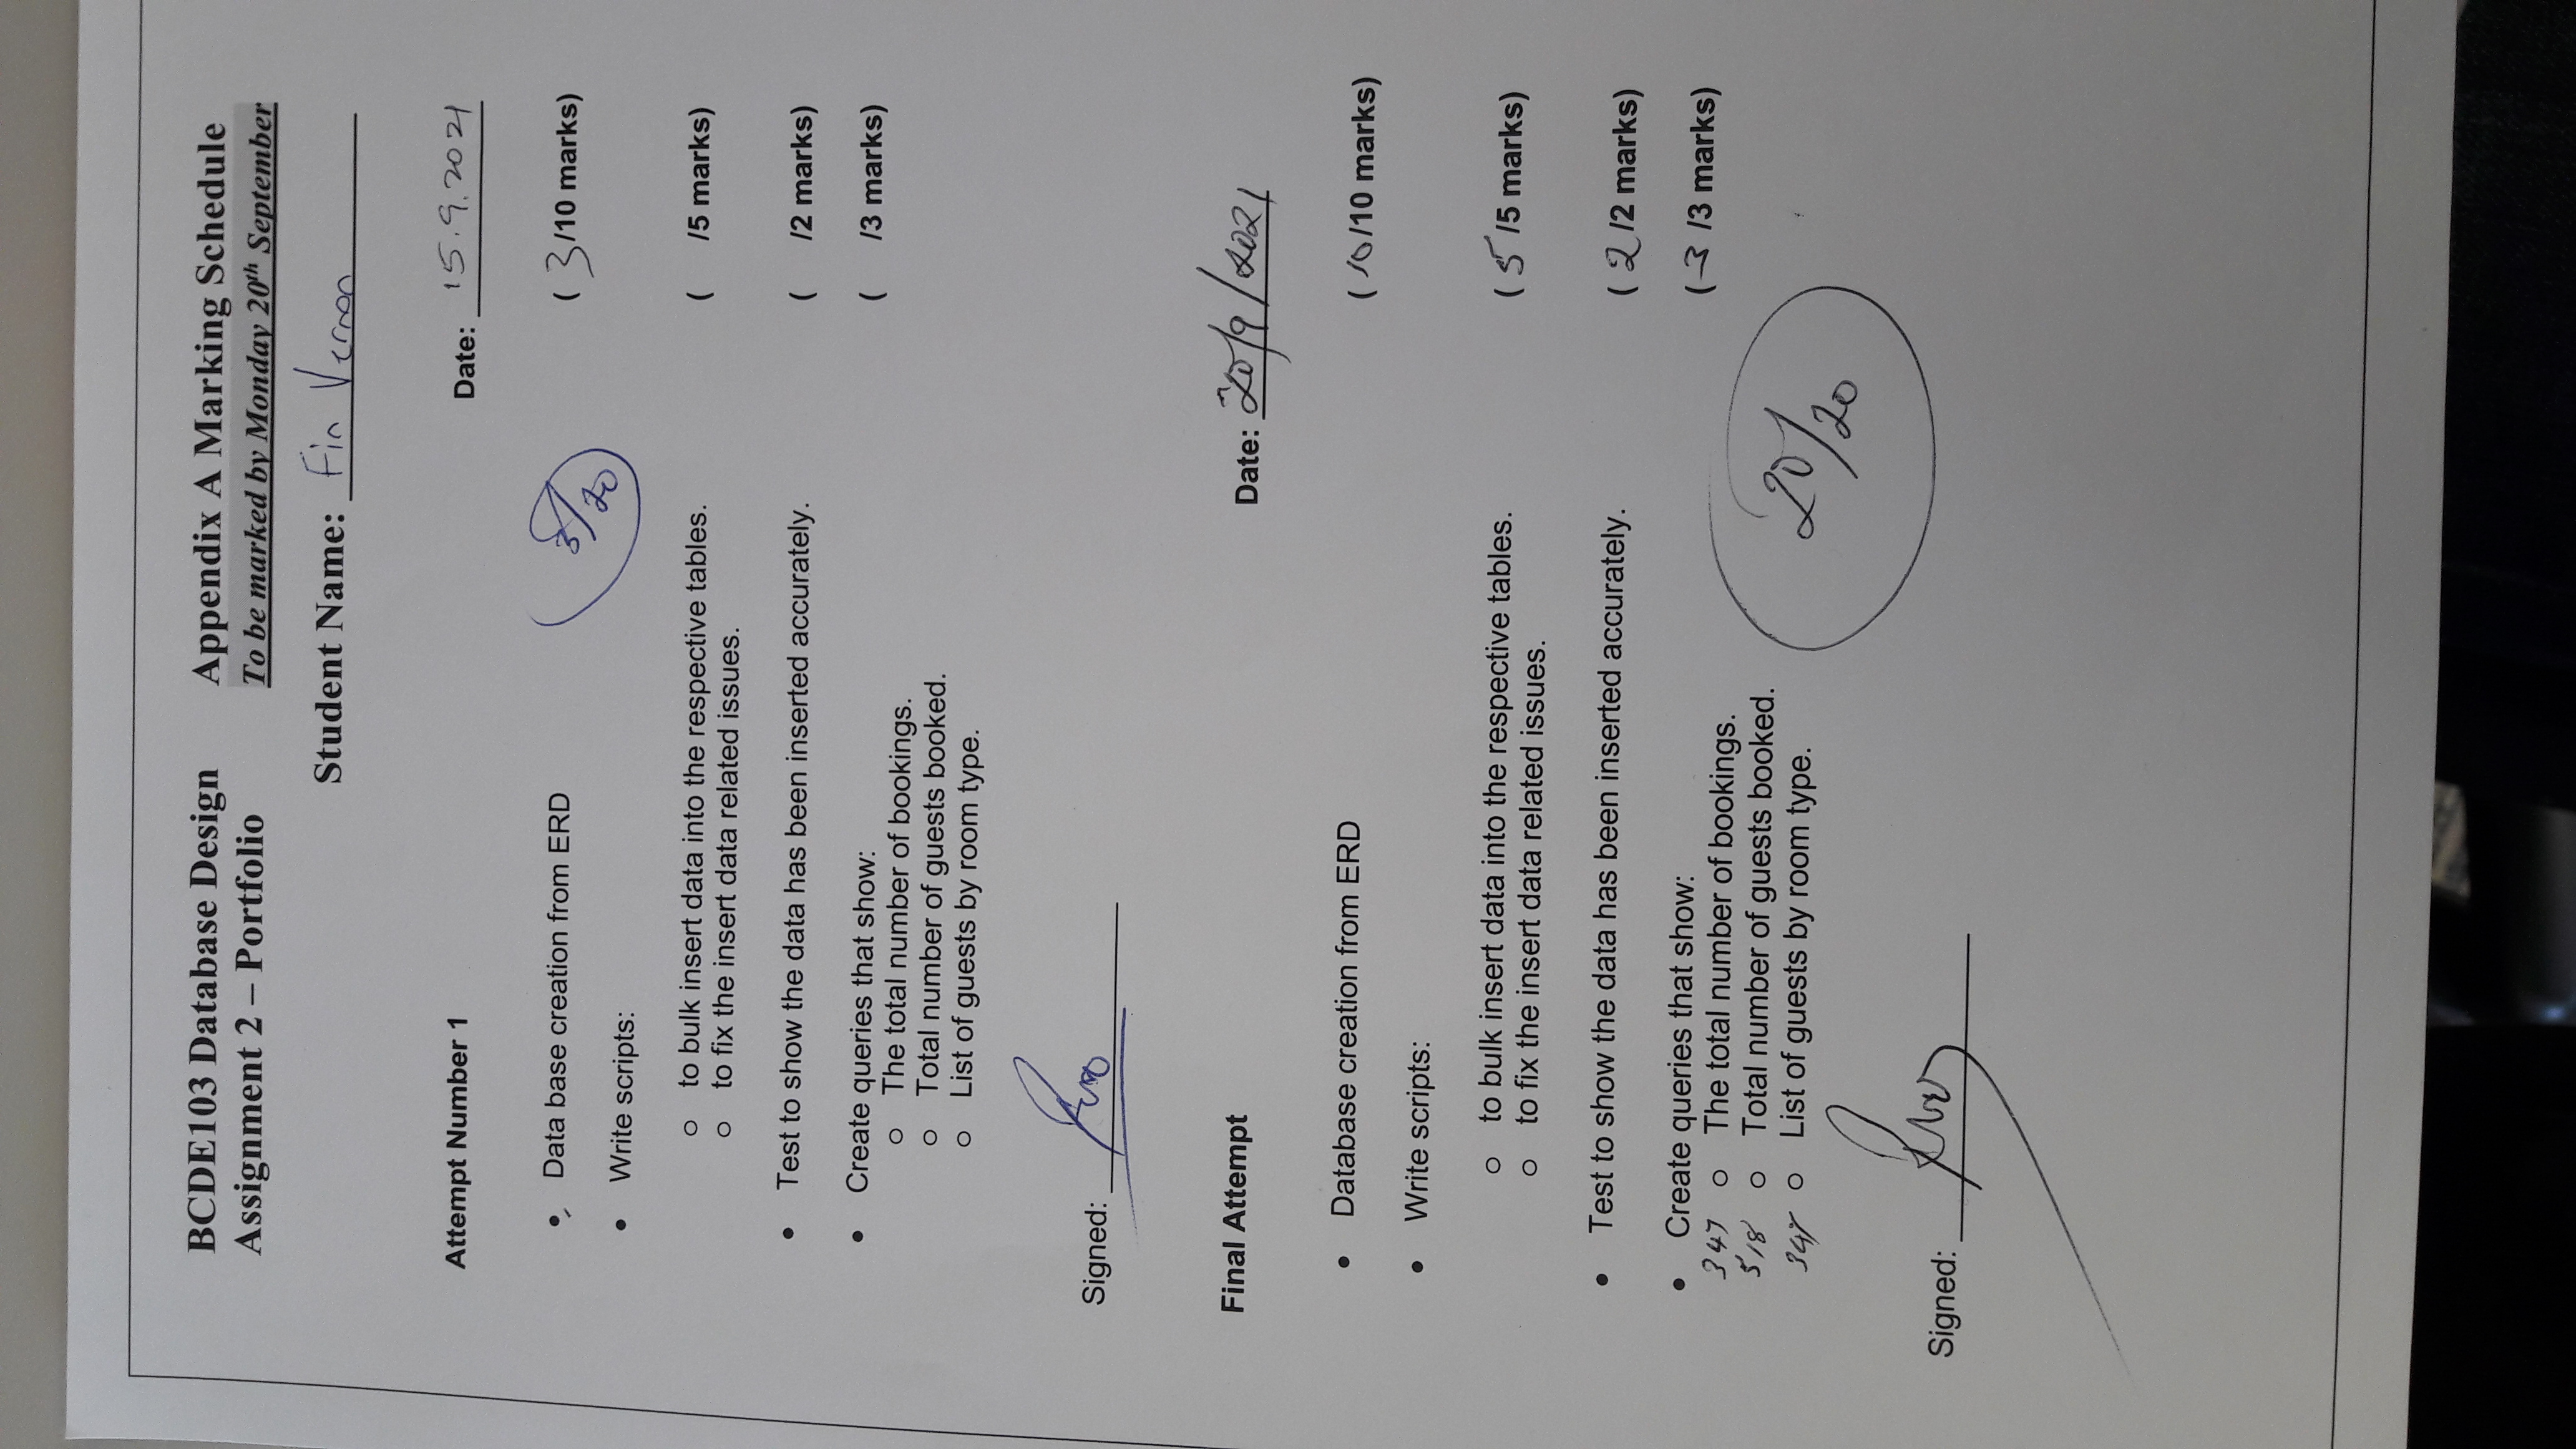 BCDE103 Database Design Appendix A Marking Schedule
Assignment 2 – Portfolio To be marked by Monday 20th September
Student Name: Fin Vernon
Attempt Number 1 Date: 15.9.2021
• Data base creation from ERD 3/20 ( 3/10 marks)
• Write scripts:
o to bulk insert data into the respective tables. ( /5 marks)
o to fix the insert data related issues.
• Test to show the data has been inserted accurately. ( /2 marks)
• Create queries that show: ( /3 marks)
o The total number of bookings.
o Total number of guests booked.
o List of guests by room type.
Signed:
Final Attempt Date: 20/9/2021
• Database creation from ERD ( 10/10 marks)
• Write scripts:
o to bulk insert data into the respective tables. ( 5/5 marks)
o to fix the insert data related issues.
• Test to show the data has been inserted accurately. ( 2/2 marks)
• Create queries that show: ( 3/3 marks)
347 o The total number of bookings.
518 o Total number of guests booked.
347 o List of guests by room type.
20/20
Signed: